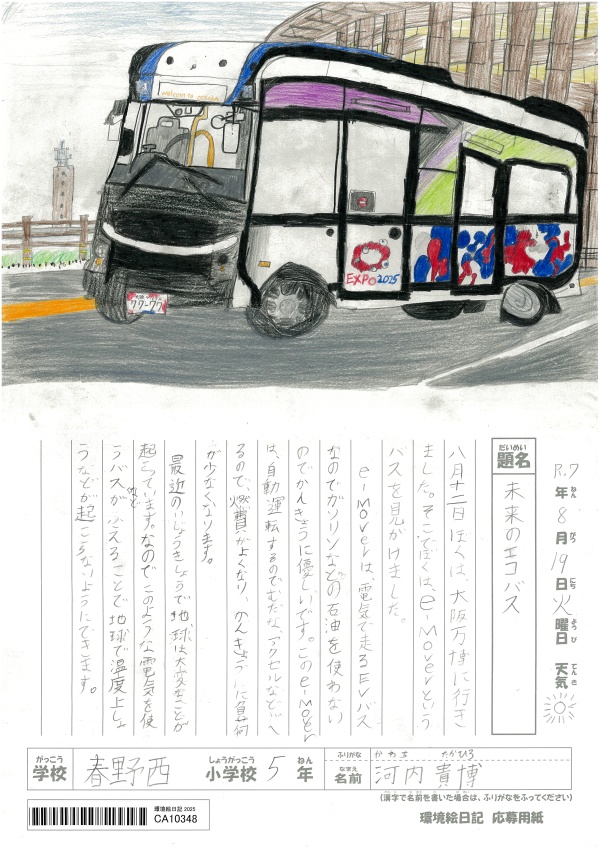 welcom to OSAKA
EXPO2025
77-77
R.7年8月19日火曜日 天気
ねん がつ にち ようび てんき
だいめい
題名 未来のエコバス
八月十二日ぼくは、大阪万博に行き
ました。そこでぼくは、e-Moverという
バスを見かけました。
e-Moverは、電気で走るEVバス
なのでガソリンなどの石油を使わない
のでかんきょうに優しいです。このe-Mover
は、自動運転するのでむだな、アクセルなどがへ
るので、燃費がよくなり、かんきょうに負荷
が少なくなります。
最近のいじょうきしょうで地球は大変なことが
起こっています。なのでこのような電気を使
うバスがふえることで地球で温度上しょ
うなどが起こらないようにできます。
がっこう しょうがっこう ねん ふりがな かわち たかひろ
学校 春野西 小学校 5年 なまえ 名前 河内貴博
(漢字で名前を書いた場合は、ふりがなをふってください)
環境絵日記 2025
CA10348
環境絵日記 応募用紙